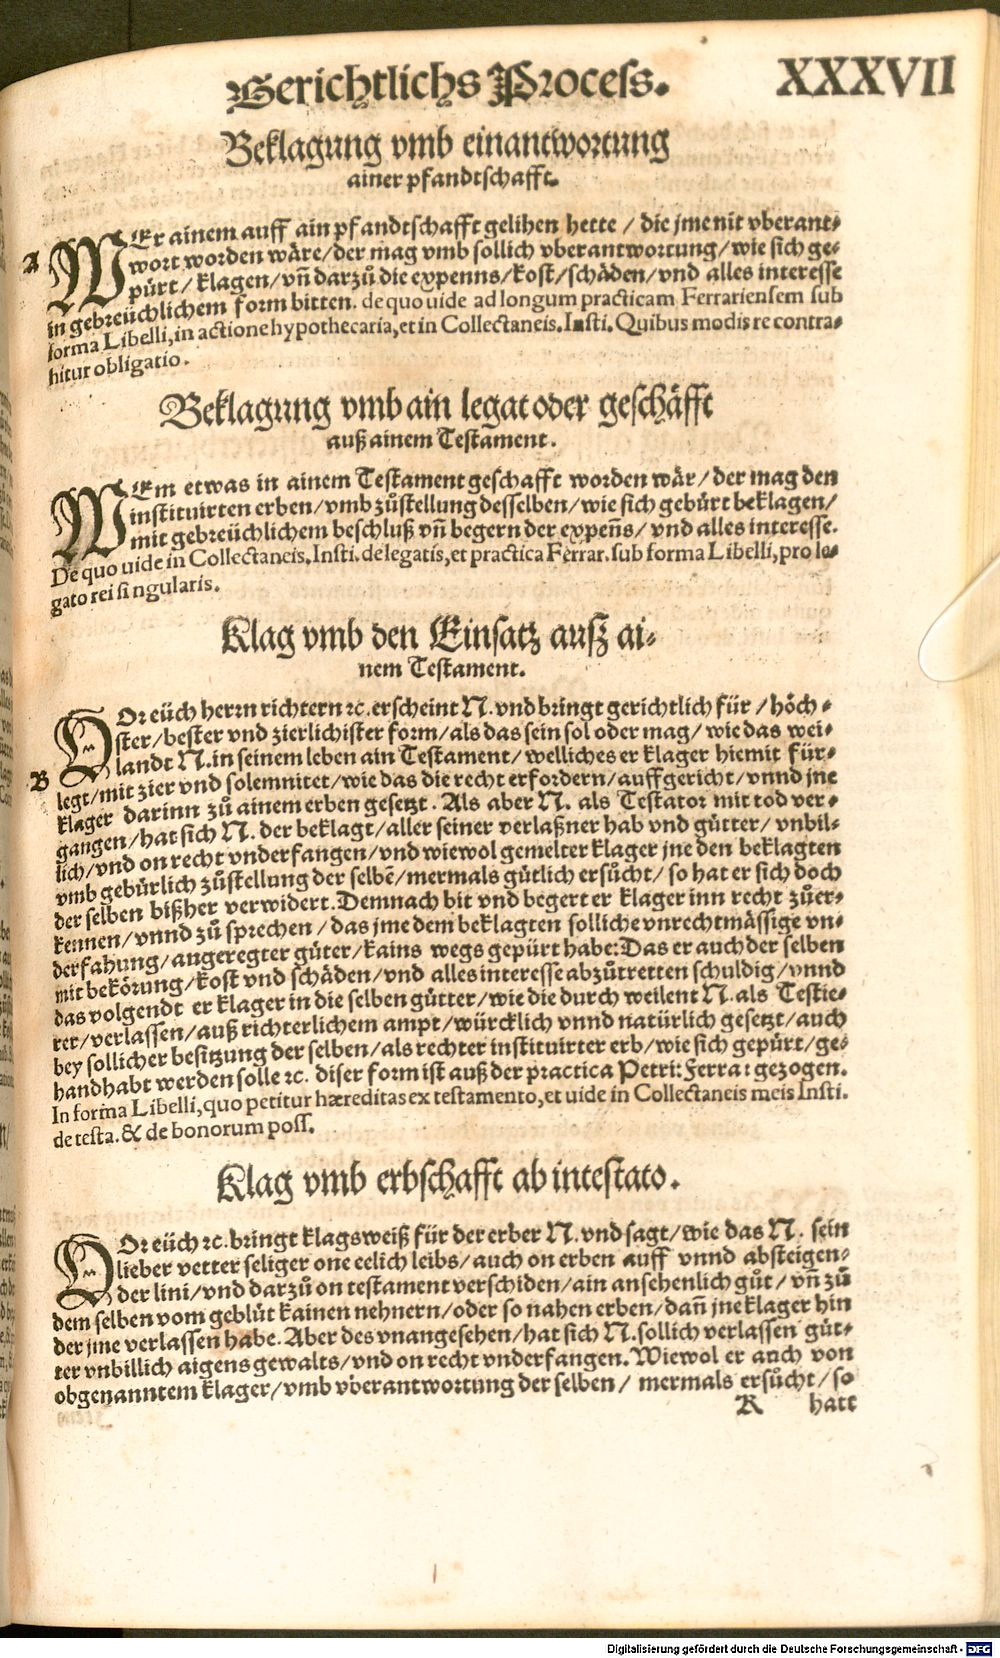 Gerichtlichs Process. XXXVII
Beklagung vmb einantwortung
ainer pfandtschafft.
A WEr ainem auff ain pfandtschafft gelihen hette / die jme nit vberant-
wort worden wäre/der mag vmb sollich vberantwortung/wie sich ge-
pürt/klagen/vñ darzů die expenns/kost/schäden/vnd alles interesse
in gebreüchlichem form bitten. de quo uide ad longum practicam Ferrariensem sub
forma Libelli, in actione hypothecaria, et in Collectaneis. Insti. Quibus modis re contra-
hitur obligatio.
Beklagung vmb ain legat oder geschäfft
auß ainem Testament.
WEm etwas in ainem Testament geschafft worden wär/der mag den
instituirten erben/vmb zůstellung desselben/wie sich gebürt beklagen/
mit gebreüchlichem beschluß vñ begern der expeñs/vnd alles interesse.
De quo uide in Collectaneis. Insti. de legatis, et practica Ferrar. sub forma Libelli, pro le-
gato rei singularis.
Klag vmb den Einsatz ausz ai-
nem Testament.
VOr eüch herrn richtern ꝛc. erscheint N. vnd bringt gerichtlich für/höch-
ster/bester vnd zierlichister form/als das sein sol oder mag/wie das wei-
landt N. in seinem leben ain Testament/welliches er klager hiemit für-
B legt/mit zier vnd solemnitet/wie das die recht erfordern/auffgericht/vnnd jne
klager darinn zů ainem erben gesetzt. Als aber N. als Testator mit tod ver-
gangen/hat sich N. der beklagt/aller seiner verlaßner hab vnd gütter/vnbil-
lich/vnd on recht vnderfangen/vnd wiewol gemelter klager jne den beklagten
vmb gebürlich zůstellung der selbē/mermals gütlich ersůcht/so hat er sich doch
der selben bißher verwidert. Demnach bit vnd begert er klager inn recht zůer-
kennen/vnnd zů sprechen/das jme dem beklagten solliche vnrechtmässige vn-
derfahung/angeregter güter/kains wegs gepürt habe: Das er auch der selben
mit bekörung/kost vnd schäden/vnd alles interesse abzůtretten schuldig/vnnd
das volgendt er klager in die selben gütter/wie die durch weilent N. als Testie-
rer/verlassen/auß richterlichem ampt/würcklich vnnd natürlich gesetzt/auch
bey sollicher besitzung der selben/als rechter instituirter erb/wie sich gepürt/ge-
handhabt werden solle ꝛc. diser form ist auß der practica Petri: Ferra: gezogen.
In forma Libelli, quo petitur hæreditas ex testamento, et uide in Collectaneis meis Insti.
de testa. & de bonorum poss.
Klag vmb erbschafft ab intestato.
VOr eüch ꝛc. bringt klagsweiß für der erber N. vnd sagt/wie das N. sein
lieber vetter seliger one eelich leibs/auch on erben auff vnnd absteigen-
der lini/vnd darzů on testament verschiden/ain ansehenlich gůt/vñ zů
dem selben vom geblüt kainen nehnern/oder so nahen erben/dañ jne klager hin
der jme verlassen habe. Aber des vnangesehen/hat sich N. sollich verlassen güt-
ter vnbillich aigens gewalts/vnd on recht vnderfangen. Wiewol er auch von
obgenanntem klager/vmb vberantwortung der selben/mermals ersůcht/so
K hatt
Digitalisierung gefördert durch die Deutsche Forschungsgemeinschaft - DFG